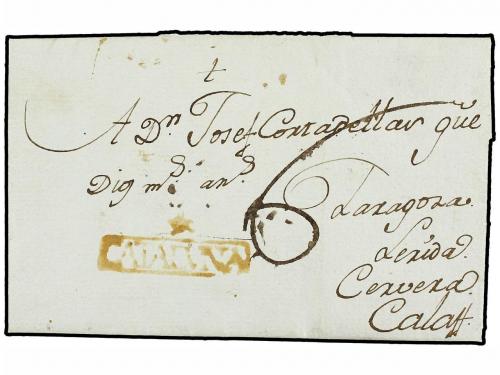 A Dn Josef Cortadellas que
Dios ms. as.
Zaragoza.
Lerida.
Cervera.
Calaff.
6